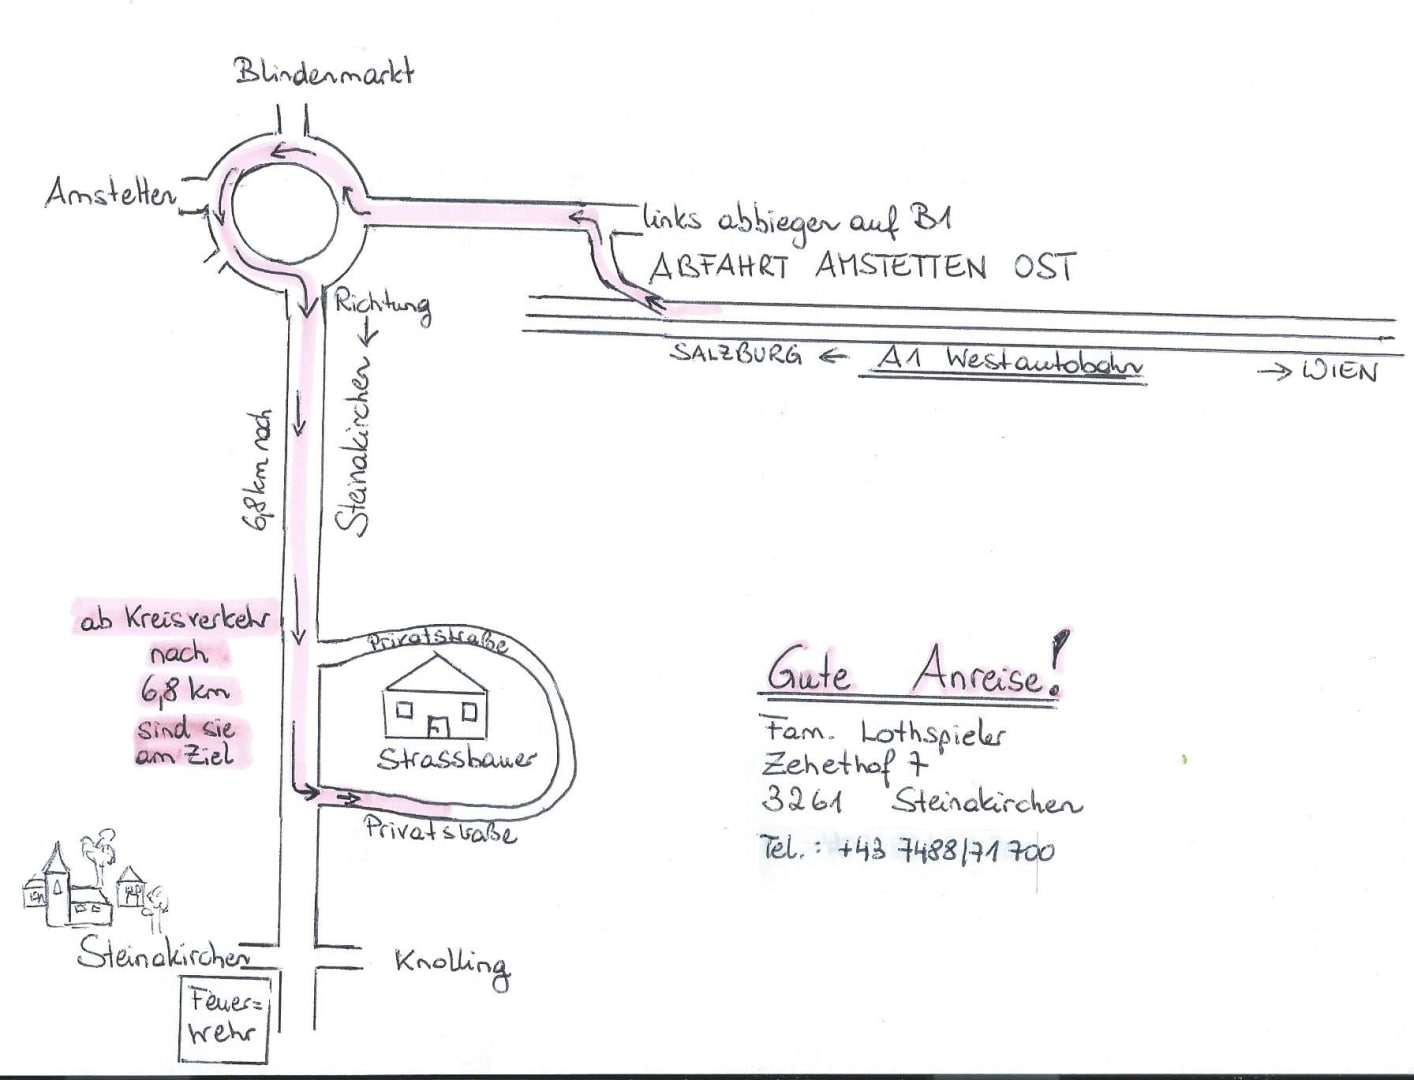 Blindenmarkt
Amstetten
links abbiegen auf B1
ABFAHRT AMSTETTEN OST
Richtung
Steinakirchen
SALZBURG ← A1 Westautobahn → WIEN
6,8 km nach
ab Kreisverkehr
nach
6,8 km
sind sie
am Ziel
Privatstraße
Strassbauer
Privatstraße
Gute Anreise!
Fam. Lothspieler
Zehethof 7
3261 Steinakirchen
Tel.: +43 7488/71 700
Steinakirchen
Knolling
Feuer=
wehr